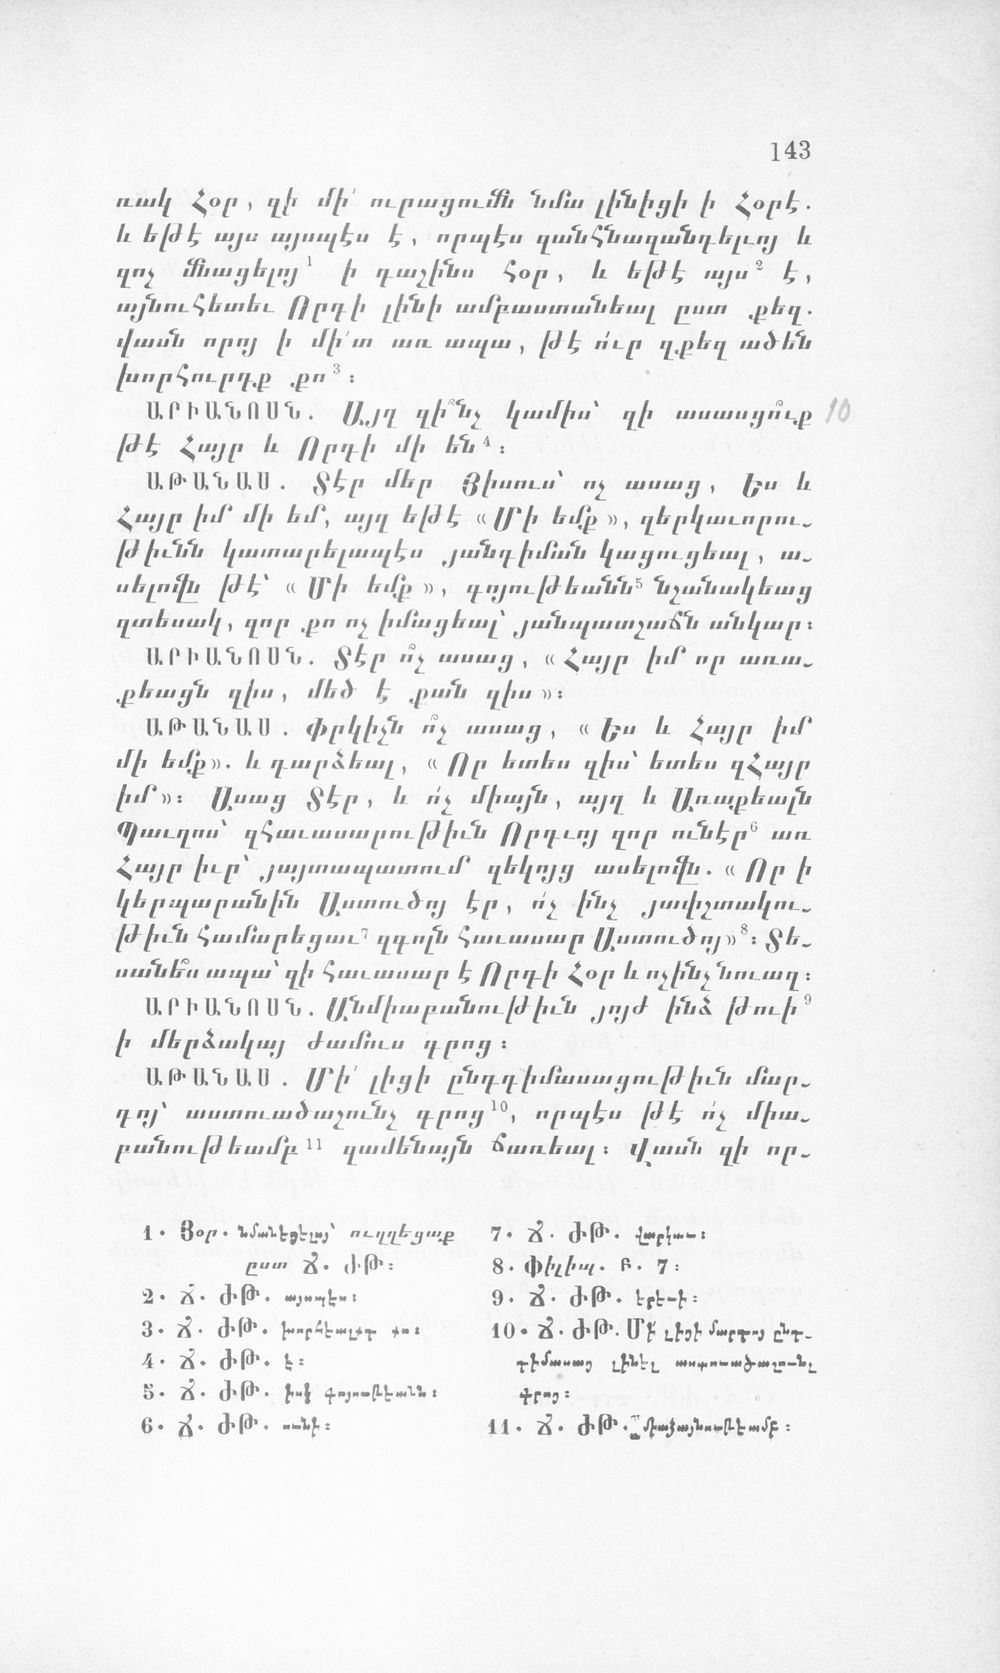 143
ռակ Հօր, զի մի՛ ուրացումն նմա լինիցի ի Հօրէ.
և եթէ այս այսպէս է, որպէս զանհնազանդելւոյ և
զոչ մնացելոյ¹ ի դաշինս հօր, և եթէ այս² է,
այնուհետեւ Որդի լինի ամբաստանեալ ըստ քեզ.
վասն որոյ ի մի՛տ առ ապա, թէ ո՛ւր զքեզ ածեն
խորհուրդք քո³։
ԱՐԻԱՆՈՍՆ. Այղ զի՞նչ կամիս՝ զի ասասցո՞ւք 10
թէ Հայր և Որդի մի են⁴։
ԱԹԱՆԱՍ. Տէր մեր Յիսուս՝ ոչ ասաց, Ես և
Հայր իմ մի եմ, այղ եթէ «Մի եմք», զերկաւորու-
թիւնն կատարելապէս յանդիման կացուցեալ, ա-
սելովն թէ՝ «Մի եմք», գոյութեանն⁵ նշանակեաց
զտեսակ, զոր քո ոչ իմացեալ՝ յանպատշաճն անկար։
ԱՐԻԱՆՈՍՆ. Տէր ո՞չ ասաց, «Հայր իմ որ առա-
քեացն զիս, մեծ է քան զիս»։
ԱԹԱՆԱՍ. Փրկիչն ո՞չ ասաց, «Ես և Հայր իմ
մի եմք». և դարձեալ, «Որ ետես զիս՝ ետես զՀայր
իմ»։ Ասաց Տէր, և ո՛չ միայն, այղ և Առաքեալն
Պաւղոս՝ զհաւասարութիւն Որդւոյ զոր ունէր⁶ առ
Հայր իւր՝ յայտապատում զեկոյց ասելովն. «Որ ի
կերպարանին Աստուծոյ էր, ո՛չ ինչ յափշտակու-
թիւն համարեցաւ⁷ զգոլն հաւասար Աստուծոյ»⁸։ Տե-
սանե՞ս ապա՝ զի հաւասար է Որդի Հօր և ոչինչ նուաղ։
ԱՐԻԱՆՈՍՆ. Անմիաբանութիւն յոյժ ինձ թուի⁹
ի մերձակայ ժամուս գրոց։
ԱԹԱՆԱՍ. Մի՛ լիցի ընդդիմասացութիւն մար-
դոյ՝ աստուածաշունչ գրոց¹⁰, որպէս թէ ո՛չ միա-
բանութեամբ¹¹ զամենայն ճառեալ։ Վասն զի որ-
1. Յօր. նմանեցելոյ՝ ուղղեցաք
ըստ Ճ. ԺԹ։
2. Ճ. ԺԹ. այսպէս։
3. Ճ. ԺԹ. խորհեալքդ քո։
4. Ճ. ԺԹ. է։
5. Ճ. ԺԹ. իսկ գոյութեանն։
6. Ճ. ԺԹ. ունի։
7. Ճ. ԺԹ. վարկաւ։
8. Փիլիպ. Բ. 7։
9. Ճ. ԺԹ. երեւի։
10. Ճ. ԺԹ. Մի՛ լիցի մարդոյ ընդ-
դիմասաց լինել աստուածաշունչ
գրոց։
11. Ճ. ԺԹ. միաձայնութեամբ։